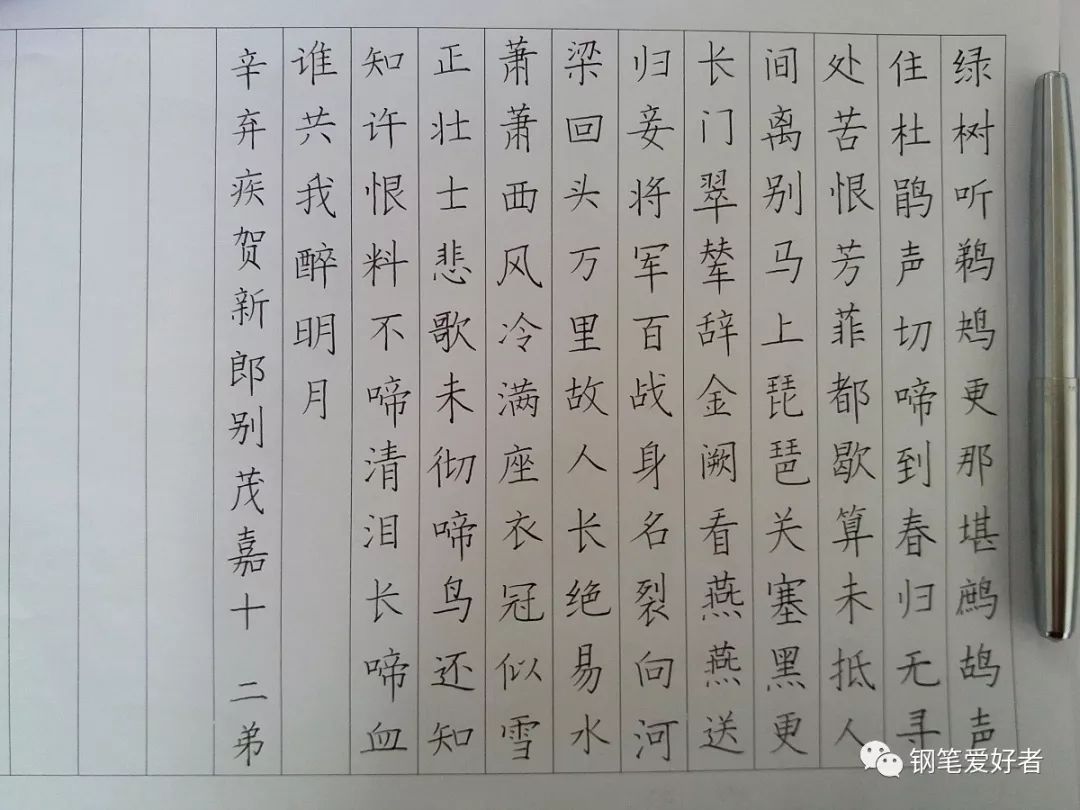 绿树听鹈𫛞更那堪鹧鸪声
住杜鹃声切啼到春归无寻
处苦恨芳菲都歇算未抵人
间离别马上琵琶关塞黑更
长门翠辇辞金阙看燕燕送
归妾将军百战身名裂向河
梁回头万里故人长绝易水
萧萧西风冷满座衣冠似雪
正壮士悲歌未彻啼鸟还知
知许恨料不啼清泪长啼血
谁共我醉明月
辛弃疾贺新郎别茂嘉十二弟
钢笔爱好者